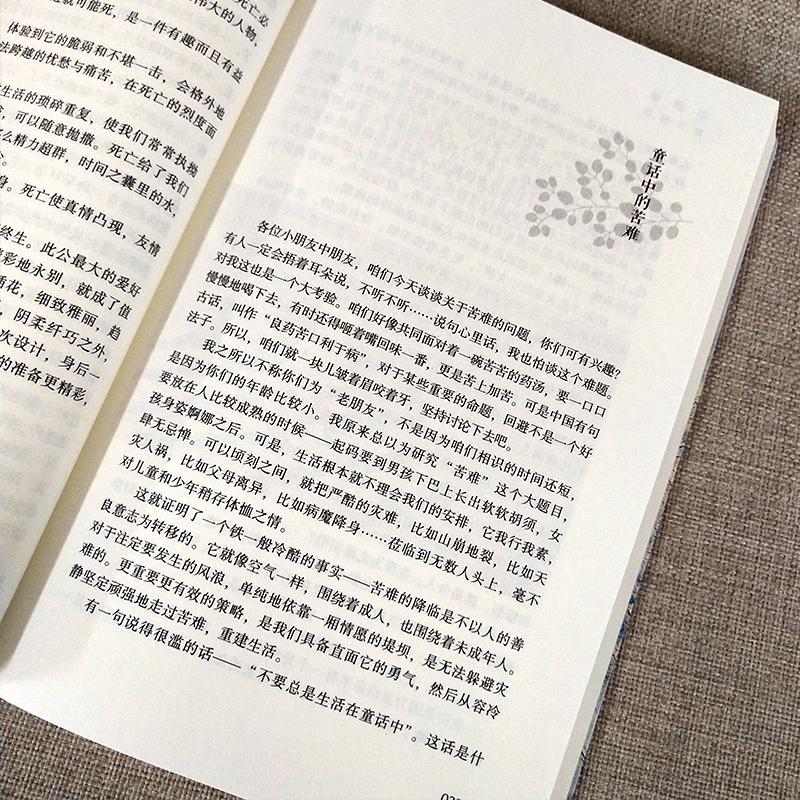 死亡必
伟大的人物，
就可能死，是一件有趣而且有益
体验到它的脆弱和不堪一击，会格外地
法跨越的忧愁与痛苦，在死亡的烈度面
生活的琐碎重复，使我们常常执拗
，可以随意抛撒。死亡给了我们
么精力超群，时间之囊里的水，
身。死亡使真情凸现，友情
终生。此公最大的爱好
精彩地永别，就成了值
插花，细致雅丽，趋
，阴柔纤巧之外，
次设计，身后一
的准备更精彩，
童话中的苦难
各位小朋友中朋友，咱们今天谈谈关于苦难的问题，你们可有兴趣？
有人一定会捂着耳朵说，不听不听……说句心里话，我也怕谈这个难题。
对我这也是一个大考验。咱们好像共同面对着一碗苦苦的药汤，要一口口
慢慢地喝下去，有时还得咂着嘴回味一番，更是苦上加苦。可是中国有句
古话，叫作“良药苦口利于病”，对于某些重要的命题，回避不是一个好
法子。所以，咱们就一块儿皱着眉咬着牙，坚持讨论下去吧。
我之所以不称你们为“老朋友”，不是因为咱们相识的时间还短，
是因为你们的年龄比较小。我原来总以为研究“苦难”这个大题目，
要放在人比较成熟的时候——起码要到男孩下巴上长出软软胡须，女
孩身姿婀娜之后。可是，生活根本就不理会我们的安排，它我行我素，
肆无忌惮。可以顷刻之间，就把严酷的灾难，比如山崩地裂，比如天
灾人祸，比如父母离异，比如病魔降身……莅临到无数人头上，毫不
对儿童和少年稍存体恤之情。
这就证明了一个铁一般冷酷的事实——苦难的降临是不以人的善
良意志为转移的。它就像空气一样，围绕着成人，也围绕着未成年人。
对于注定要发生的风浪，单纯地依靠一厢情愿的堤坝，是无法躲避灾
难的。更重要更有效的策略，是我们具备直面它的勇气，然后从容冷
静坚定顽强地走过苦难，重建生活。
有一句说得很滥的话——“不要总是生活在童话中”。这话是什